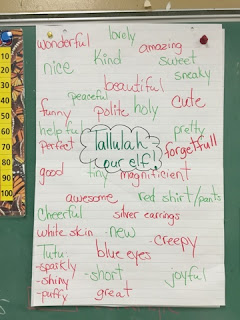 lovely
wonderful amazing
nice Kind sweet
sneaky
beautiful
peaceful
funny polite holy cute
helpful pretty
perfect Tallulah forgetfull
our elf!
good tiny magnificient
awesome red shirt/pants
Cheerful silver earrings
white skin -new
-creepy
Tutu: blue eyes
-sparkly
-shiny -short joyful
-puffy great
10
20
30
40
50
60
70
80
90
100